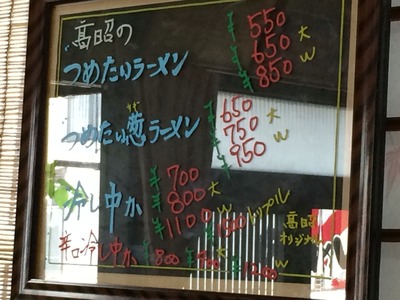 高昭の
つめたいラーメン ¥550
¥650大
¥850W
つめたい葱ラーメン ¥650
¥750大
¥950W
冷し中か ¥700
¥800大
¥1100W
トリプル
高昭
オリジナル
辛口冷し中か ¥800 大 ¥1200W